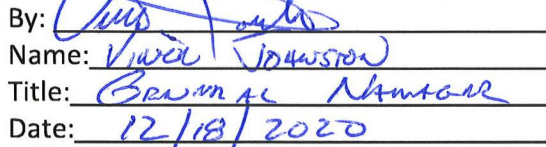 By:
Name: Johnston
Title: General Manager
Date: 12/18/2020